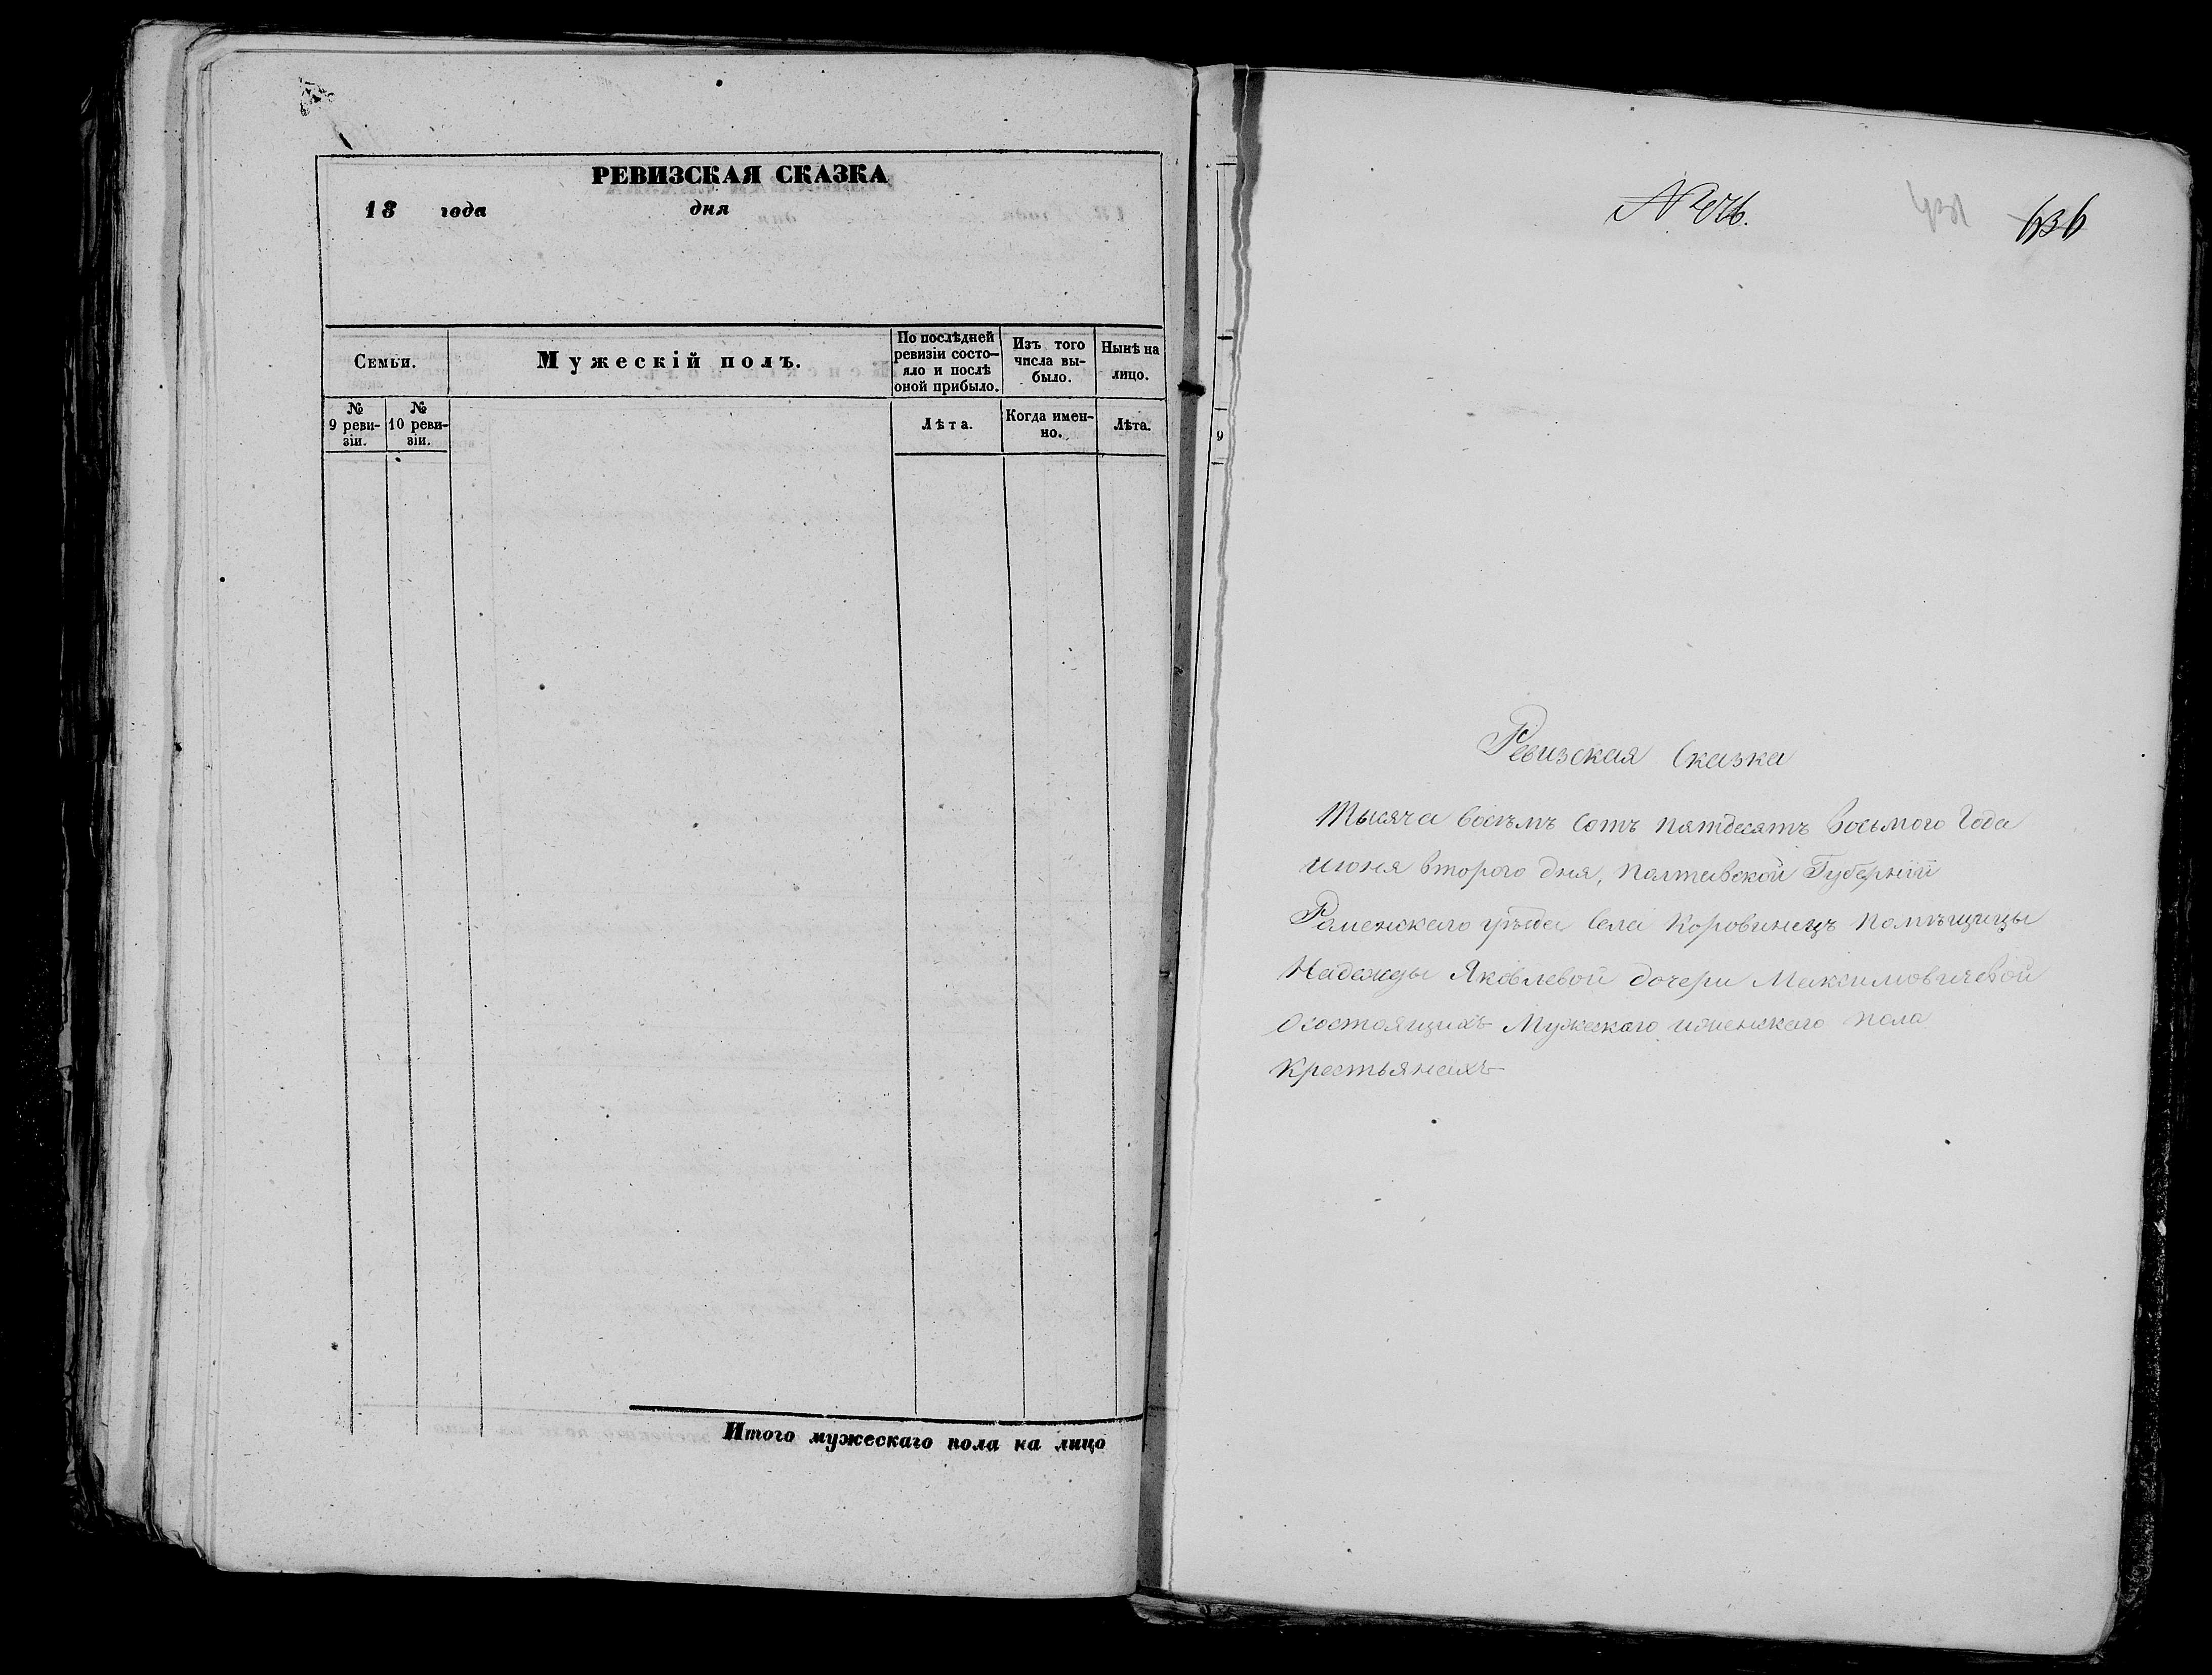 РЕВИЗСКАЯ СКАЗКА
18 года дня
Семьи.
Мужескій полъ.
По послѣдней ревизіи состо-яло и послѣ оной прибыло.
Изъ того числа вы-было.
Нынѣ на лицо.
№ 9 реви-зіи.
№ 10 реви-зіи.
Лѣта.
Когда имен-но.
Лѣта.
Итого мужескаго пола на лицо
9
636
Ревизская Сказка
Тысяча восѣмъ сотъ пятдесятъ восьмого года
июня второго дня, Полтавской Губерніи
Роменского уѣзда села Коровинецъ Помѣщицы
Надежды Яковлевой дочери Максимовичевой
о состоящихъ Мужескаго и женскаго пола
Крестьянахъ